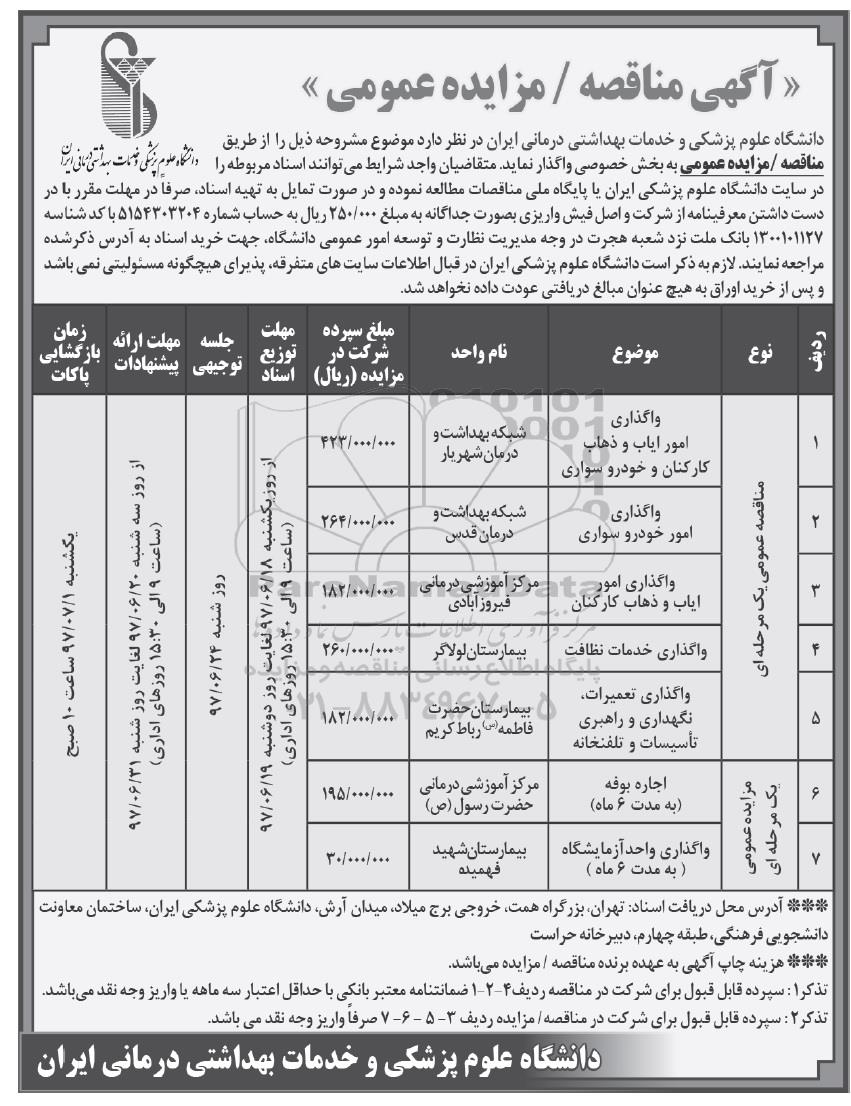 « آگهی مناقصه / مزایده عمومی »
دانشگاه علوم پزشکی و خدمات بهداشتی درمانی ایران
دانشگاه علوم پزشکی و خدمات بهداشتی درمانی ایران در نظر دارد موضوع مشروحه ذیل را از طریق
مناقصه /مزایده عمومی به بخش خصوصی واگذار نماید. متقاضیان واجد شرایط می‌توانند اسناد مربوطه را
در سایت دانشگاه علوم پزشکی ایران یا پایگاه ملی مناقصات مطالعه نموده و در صورت تمایل به تهیه اسناد، صرفاً در مهلت مقرر با در
دست داشتن معرفینامه از شرکت و اصل فیش واریزی بصورت جداگانه به مبلغ ۲۵۰/۰۰۰ ریال به حساب شماره ۵۱۵۴۳۰۳۲۰۴ با کد شناسه
۱۳۰۰۱۰۱۱۲۷ بانک ملت نزد شعبه هجرت در وجه مدیریت نظارت و توسعه امور عمومی دانشگاه، جهت خرید اسناد به آدرس ذکرشده
مراجعه نمایند. لازم به ذکر است دانشگاه علوم پزشکی ایران در قبال اطلاعات سایت های متفرقه، پذیرای هیچگونه مسئولیتی نمی باشد
و پس از خرید اوراق به هیچ عنوان مبالغ دریافتی عودت داده نخواهد شد.
ردیف
نوع
موضوع
نام واحد
مبلغ سپرده
شرکت در
مزایده (ریال)
مهلت
توزیع
اسناد
جلسه
توجیهی
مهلت ارائه
پیشنهادات
زمان
بازگشایی
پاکات
مناقصه عمومی یک مرحله ای
۱
واگذاری
امور ایاب و ذهاب
کارکنان و خودرو سواری
شبکه بهداشت و
درمان شهریار
۴۲۳/۰۰۰/۰۰۰
از روز یکشنبه ۹۷/۰۶/۱۸ لغایت روز دوشنبه ۹۷/۰۶/۱۹
(ساعت ۹ الی ۱۵:۳۰ روزهای اداری)
روز شنبه ۹۷/۰۶/۲۴
از روز سه شنبه ۹۷/۰۶/۲۰ لغایت روز شنبه ۹۷/۰۶/۳۱
(ساعت ۹ الی ۱۵:۳۰ روزهای اداری)
یکشنبه ۹۷/۰۷/۱ ساعت ۱۰ صبح
۲
واگذاری
امور خودرو سواری
شبکه بهداشت و
درمان قدس
۲۶۴/۰۰۰/۰۰۰
۳
واگذاری امور
ایاب و ذهاب کارکنان
مرکز آموزشی درمانی
فیروزآبادی
۱۸۲/۰۰۰/۰۰۰
۴
واگذاری خدمات نظافت
بیمارستان لولاگر
۲۶۰/۰۰۰/۰۰۰
۵
واگذاری تعمیرات،
نگهداری و راهبری
تأسیسات و تلفنخانه
بیمارستان حضرت
فاطمه(س) رباط کریم
۱۸۲/۰۰۰/۰۰۰
مزایده عمومی
یک مرحله ای
۶
اجاره بوفه
(به مدت ۶ ماه)
مرکز آموزشی درمانی
حضرت رسول (ص)
۱۹۵/۰۰۰/۰۰۰
۷
واگذاری واحد آزمایشگاه
( به مدت ۶ ماه )
بیمارستان شهید
فهمیده
۳۰/۰۰۰/۰۰۰
ParsNamadData
مرکز فرآوری اطلاعات پارس نماد داده‌ها
پایگاه اطلاع رسانی مناقصه و مزایده
۰۲۱-۸۸۳۴۹۶۷۰-۵
*** آدرس محل دریافت اسناد: تهران، بزرگراه همت، خروجی برج میلاد، میدان آرش، دانشگاه علوم پزشکی ایران، ساختمان معاونت
دانشجویی فرهنگی، طبقه چهارم، دبیرخانه حراست
*** هزینه چاپ آگهی به عهده برنده مناقصه / مزایده می‌باشد.
تذکر۱: سپرده قابل قبول برای شرکت در مناقصه ردیف۴-۲-۱ ضمانتنامه معتبر بانکی با حداقل اعتبار سه ماهه یا واریز وجه نقد می‌باشد.
تذکر۲: سپرده قابل قبول برای شرکت در مناقصه/ مزایده ردیف ۳- ۵ - ۶- ۷ صرفاً واریز وجه نقد می باشد.
دانشگاه علوم پزشکی و خدمات بهداشتی درمانی ایران